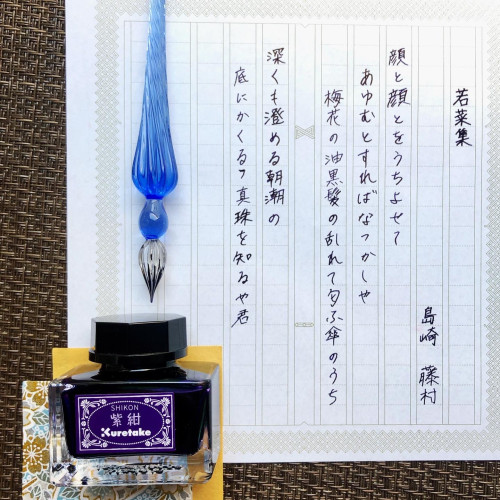 若菜集
島崎 藤村
顔と顔とをうちよせて
あゆむとすればなつかしや
梅花の油黒髪の
乱れて匂ふ傘のうち
深くも澄める朝潮の
底にかくるゝ真珠を知るや君
SHIKON
紫紺
Kuretake